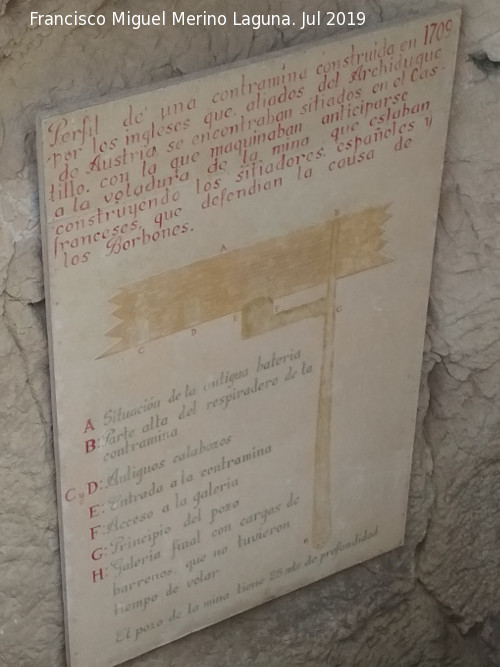 Francisco Miguel Merino Laguna. Jul 2019
Perfil de una contramina construida en 1709
por los ingleses que, aliados del Archiduque
de Austria, se encontraban sitiados en el Cas-
tillo, con la que maquinaban anticiparse
a la voladura de la mina que estaban
construyendo los sitiadores, españoles y
franceses, que defendian la causa de
los Borbones.
A
B
C
D
E
F
G
H
A Situación de la antigua bateria
B: Parte alta del respiradero de la
contramina
C y D: Antiguos calabozos
E: Entrada a la contramina
F: Acceso a la galeria
G: Principio del pozo
H: Galeria final con cargas de
barrenos, que no tuvieron
tiempo de volar
El pozo de la mina tiene 28 mts de profundidad